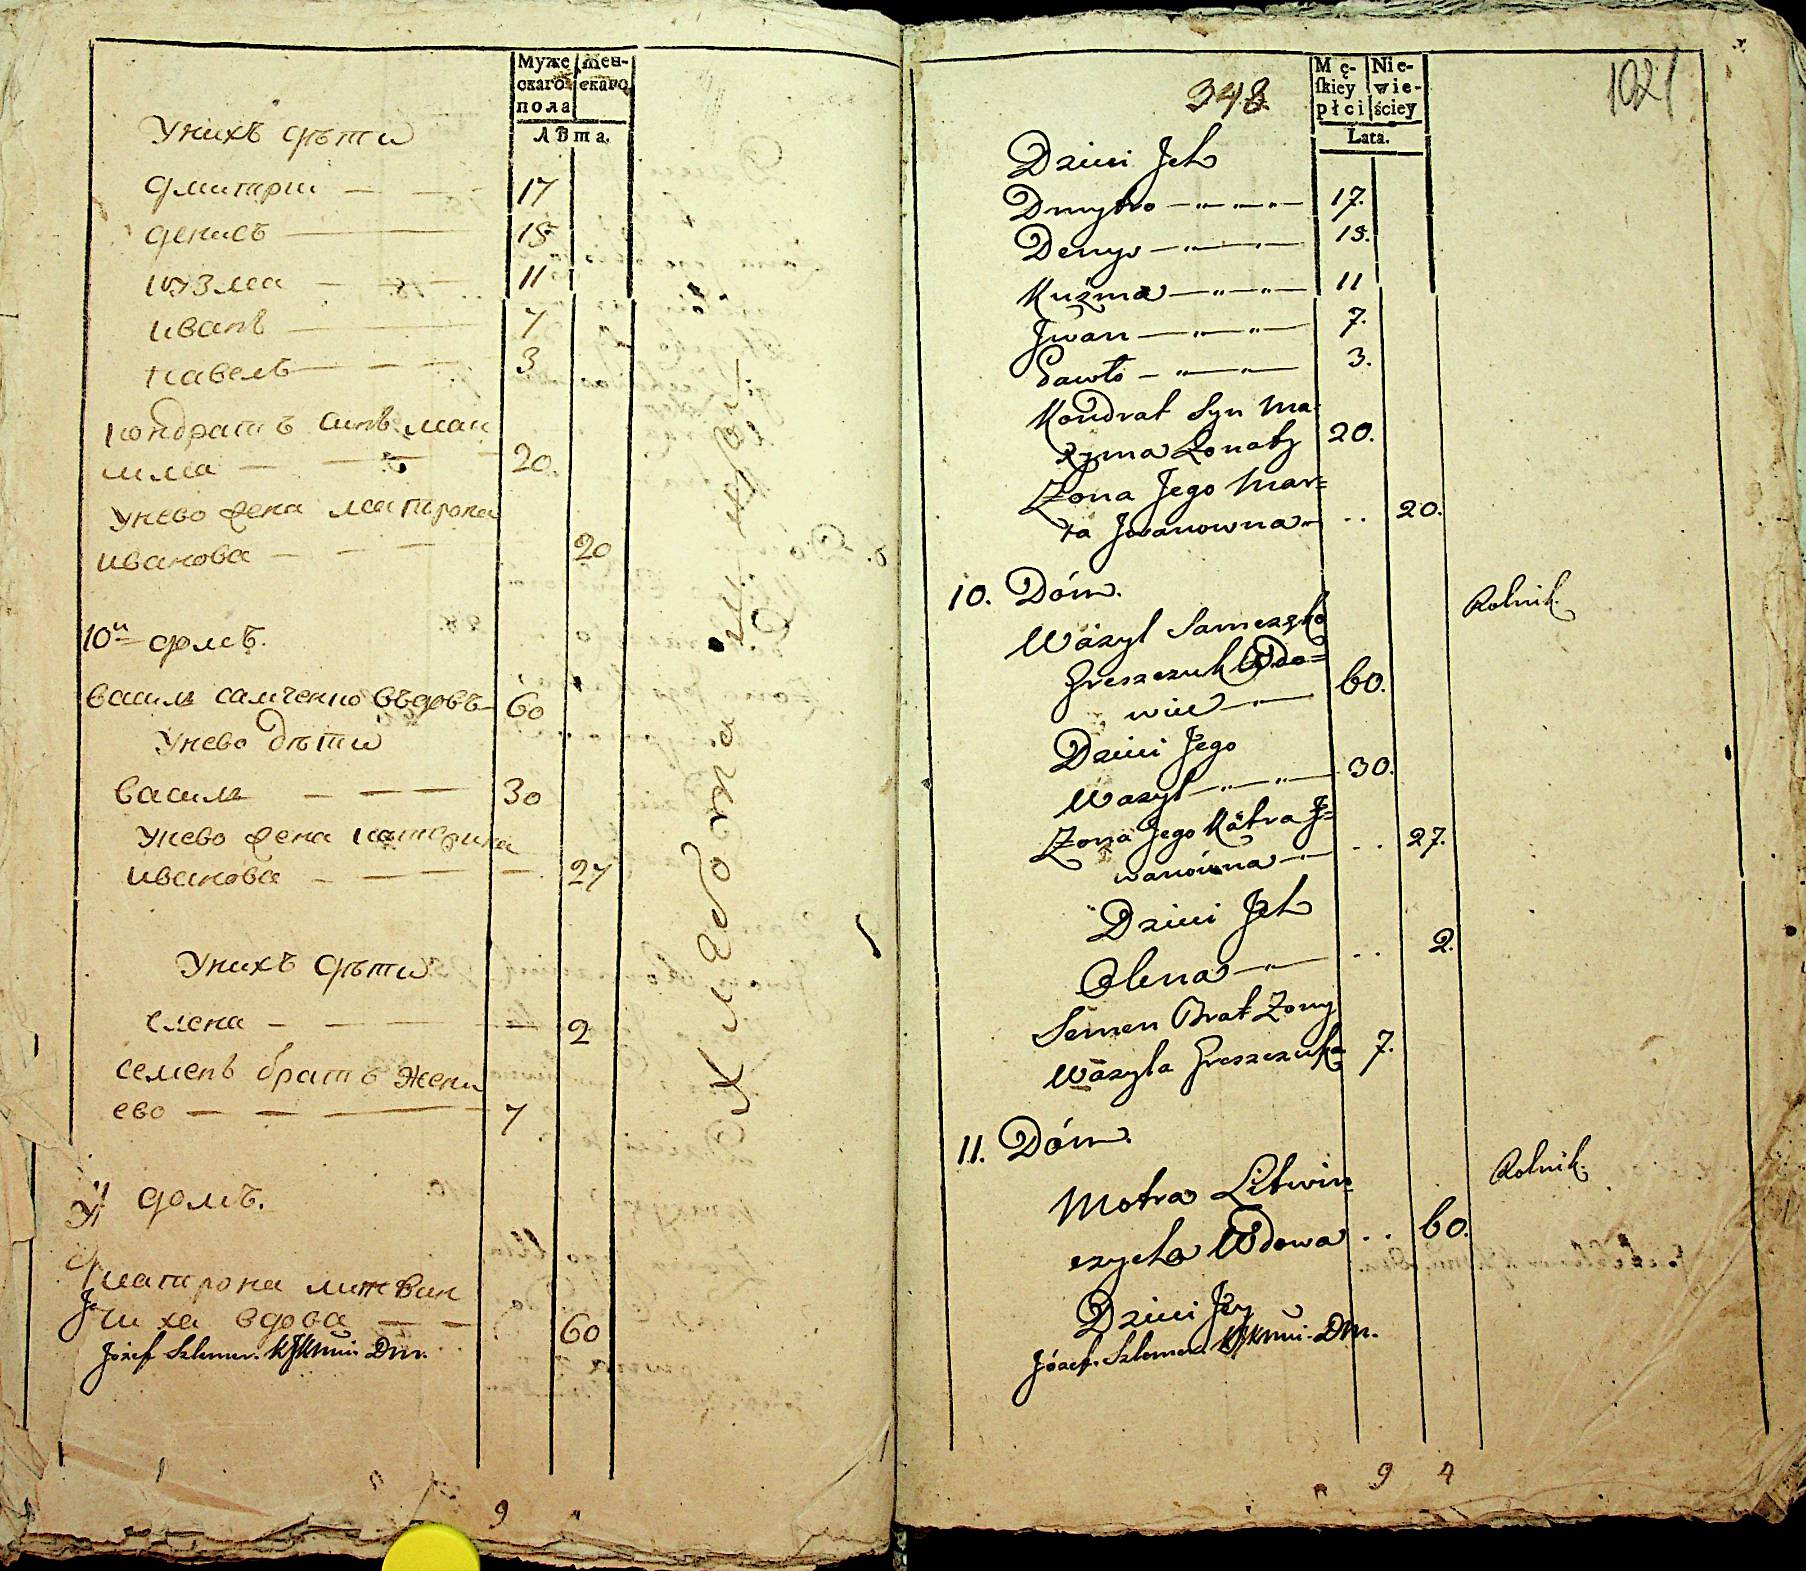 Муже
скаго
пола
жен-
скаго
Лѣта.
Унихъ дѣти
Дмитри — — — 17
Денисъ — 15
Кузма — — — 11
Иванъ — 7
Павелъ — — — 3
Кондратъ синъ Мак
сима — — — 20.
Унево жена Матрона
Иванова — — — 20
10й домъ.
Василь Самченко въдовъ- 60
Унево дѣти
Василь — — — 30
Унево жена Катерина
Иванова — — — 27
Унихъ дѣти
Елена — — — 2
Семенъ братъ жени
ево — — — 7
домъ.
Матрона Литвин
чиха вдова — — 60
Józef Szlemer.
Хлебопа
9
348.
1021
Mę-
ſkiey
płci
Nie-
wie-
ściey
Lata.
Dzieci Jch
Dmytro — „ — „ — 17.
Denys — „ — „ — 15.
Kuźma — „ — „ — 11
Jwan — „ — „ — 7.
Pawło — „ — „ — 3.
Kondrat Syn Ma-
xyma Żonaty 20.
Żona Jego Mar=
ta Jwanowna — .. 20.
10. Dóm.
Rolnik.
Wasyl Samczęko
Greszczuk Wdo=
wiec — „ — 60.
Dzieci Jego
Wasyl — „ — „ — 30.
Żona Jego Katra J=
wanówna — „ — .. 27.
Dzieci Jch
Olena — „ — .. 2.
Semen Brat Żony
Wasyla Greszczuka 7.
11. Dóm.
Rolnik.
Motra Litwin
czycha Wdowa .. 60.
Dzieci Jey
Józef Szlemer
9 4